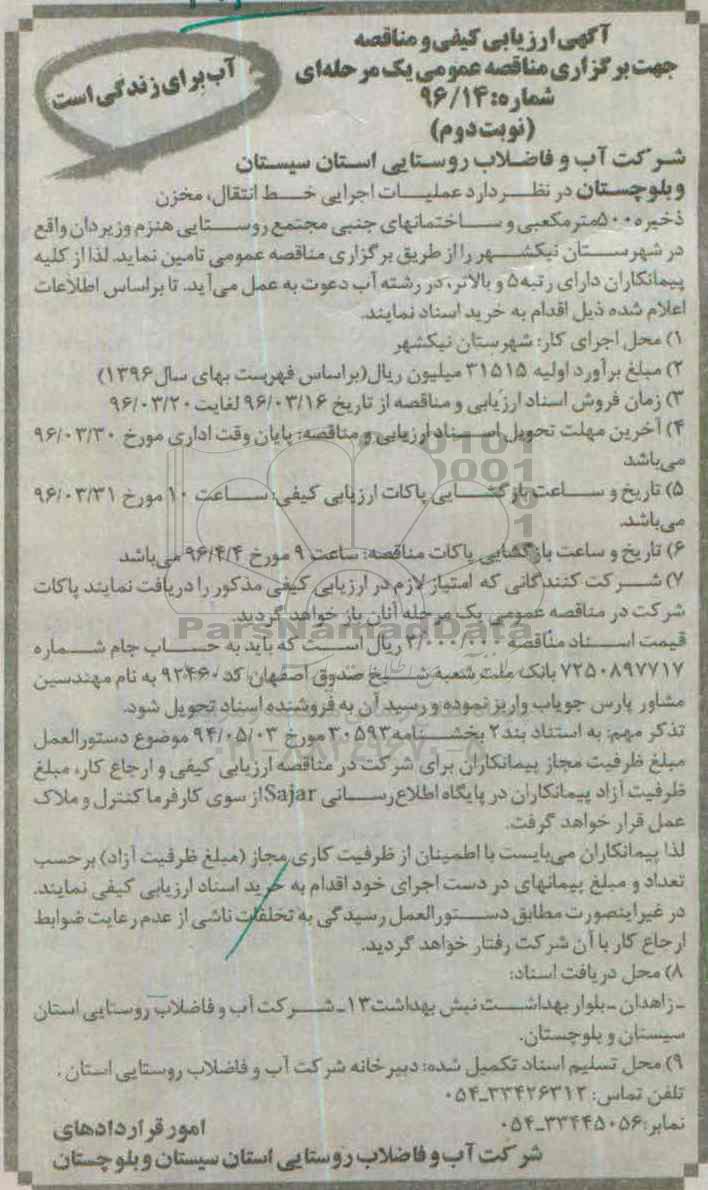 آگهی ارزیابی کیفی و مناقصه
جهت برگزاری مناقصه عمومی یک مرحله‌ای
شماره: ۹۶/۱۴
(نوبت دوم)
آب برای زندگی است
شرکت آب و فاضلاب روستایی استان سیستان
و بلوچستان در نظر دارد عملیات اجرایی خط انتقال، مخزن
ذخیره ۵۰۰مترمکعبی و ساختمانهای جنبی مجتمع روستایی هنزم وزیردان واقع
در شهرستان نیکشهر را از طریق برگزاری مناقصه عمومی تامین نماید. لذا از کلیه
پیمانکاران دارای رتبه۵ و بالاتر، در رشته آب دعوت به عمل می‌آید. تا براساس اطلاعات
اعلام شده ذیل اقدام به خرید اسناد نمایند.
۱) محل اجرای کار: شهرستان نیکشهر
۲) مبلغ برآورد اولیه ۳۱۵۱۵ میلیون ریال(براساس فهرست بهای سال۱۳۹۶)
۳) زمان فروش اسناد ارزیابی و مناقصه از تاریخ ۹۶/۰۳/۱۶ لغایت ۹۶/۰۳/۲۰
۴) آخرین مهلت تحویل اسناد ارزیابی و مناقصه: پایان وقت اداری مورخ ۹۶/۰۳/۳۰
می‌باشد
۵) تاریخ و ساعت بازگشایی پاکات ارزیابی کیفی: ساعت ۱۰ مورخ ۹۶/۰۳/۳۱
می‌باشد.
۶) تاریخ و ساعت بازگشایی پاکات مناقصه: ساعت ۹ مورخ ۹۶/۴/۴ می‌باشد
۷) شرکت کنندگانی که امتیاز لازم در ارزیابی کیفی مذکور را دریافت نمایند پاکات
شرکت در مناقصه عمومی یک مرحله آنان باز خواهد گردید.
ParsNamadData
قیمت اسناد مناقصه ۲/۰۰۰/۰۰۰ ریال است که باید به حساب جام شماره
۷۲۵۰۸۹۷۷۱۷ بانک ملت شعبه شیخ صدوق اصفهان کد ۹۲۴۶۰ به نام مهندسین
مشاور پارس جویاب واریز نموده و رسید آن به فروشنده اسناد تحویل شود.
تذکر مهم: به استناد بند۲ بخشنامه۳۰۵۹۳ مورخ ۹۴/۰۵/۰۳ موضوع دستورالعمل
مبلغ ظرفیت مجاز پیمانکاران برای شرکت در مناقصه ارزیابی کیفی و ارجاع کار، مبلغ
ظرفیت آزاد پیمانکاران در پایگاه اطلاع‌رسانی Sajar از سوی کارفرما کنترل و ملاک
عمل قرار خواهد گرفت.
لذا پیمانکاران می‌بایست با اطمینان از ظرفیت کاری مجاز (مبلغ ظرفیت آزاد) برحسب
تعداد و مبلغ پیمانهای در دست اجرای خود اقدام به خرید اسناد ارزیابی کیفی نمایند.
در غیر اینصورت مطابق دستورالعمل رسیدگی به تخلفات ناشی از عدم رعایت ضوابط
ارجاع کار با آن شرکت رفتار خواهد گردید.
۸) محل دریافت اسناد:
ـ زاهدان ـ بلوار بهداشت نبش بهداشت۱۳ ـ شرکت آب و فاضلاب روستایی استان
سیستان و بلوچستان.
۹) محل تسلیم اسناد تکمیل شده: دبیرخانه شرکت آب و فاضلاب روستایی استان .
تلفن تماس: ۳۳۴۲۶۳۱۲-۰۵۴
نمابر: ۳۳۴۴۵۰۵۶-۰۵۴
امور قراردادهای
شرکت آب و فاضلاب روستایی استان سیستان و بلوچستان